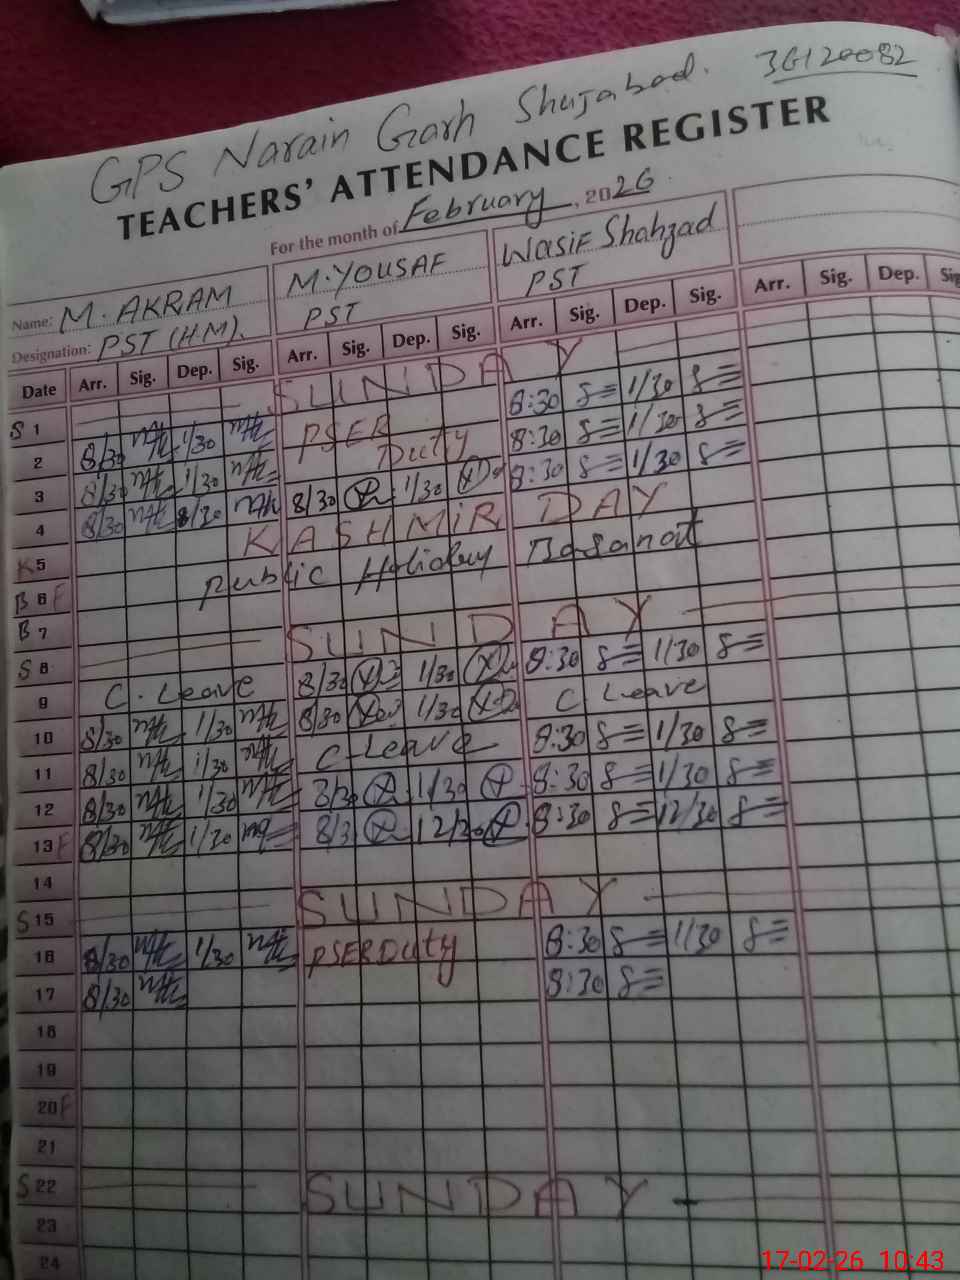 GPS Narain Garh Shujabad. 36120082
TEACHERS' ATTENDANCE REGISTER
For the month of February, 2026
Name: M. AKRAM M. YOUSAF Wasif Shahzad
Designation: PST (HM). PST PST
Date Arr. Sig. Dep. Sig. Arr. Sig. Dep. Sig. Arr. Sig. Dep. Sig. Arr. Sig. Dep. Sig
S 1 SUNDAY
2 8/30 1/30 PSER 8:30 1/30
3 8/30 1/30 Duty 8:30 1/30
4 8/30 8/30 1/30 8:30 1/30
K 5 KASHMIR DAY
B 6 F Public Holiday Basanat
B 7
S 8 SUNDAY
9 C. Leave 8/30 1/30 8:30 1/30
10 8/30 1/30 8/30 1/30 C Leave
11 8/30 1/30 C-Leave 8:30 1/30
12 8/30 1/30 8/30 1/30 8:30 1/30
13 F 8/30 1/30 8/3 12/30 8:30 12/30
14
S 15 SUNDAY
16 8/30 1/30 PSER Duty 8:30 1/30
17 8/30 8:30
18
19
20 F
21
S 22 SUNDAY
23
24
17-02-26 10:43